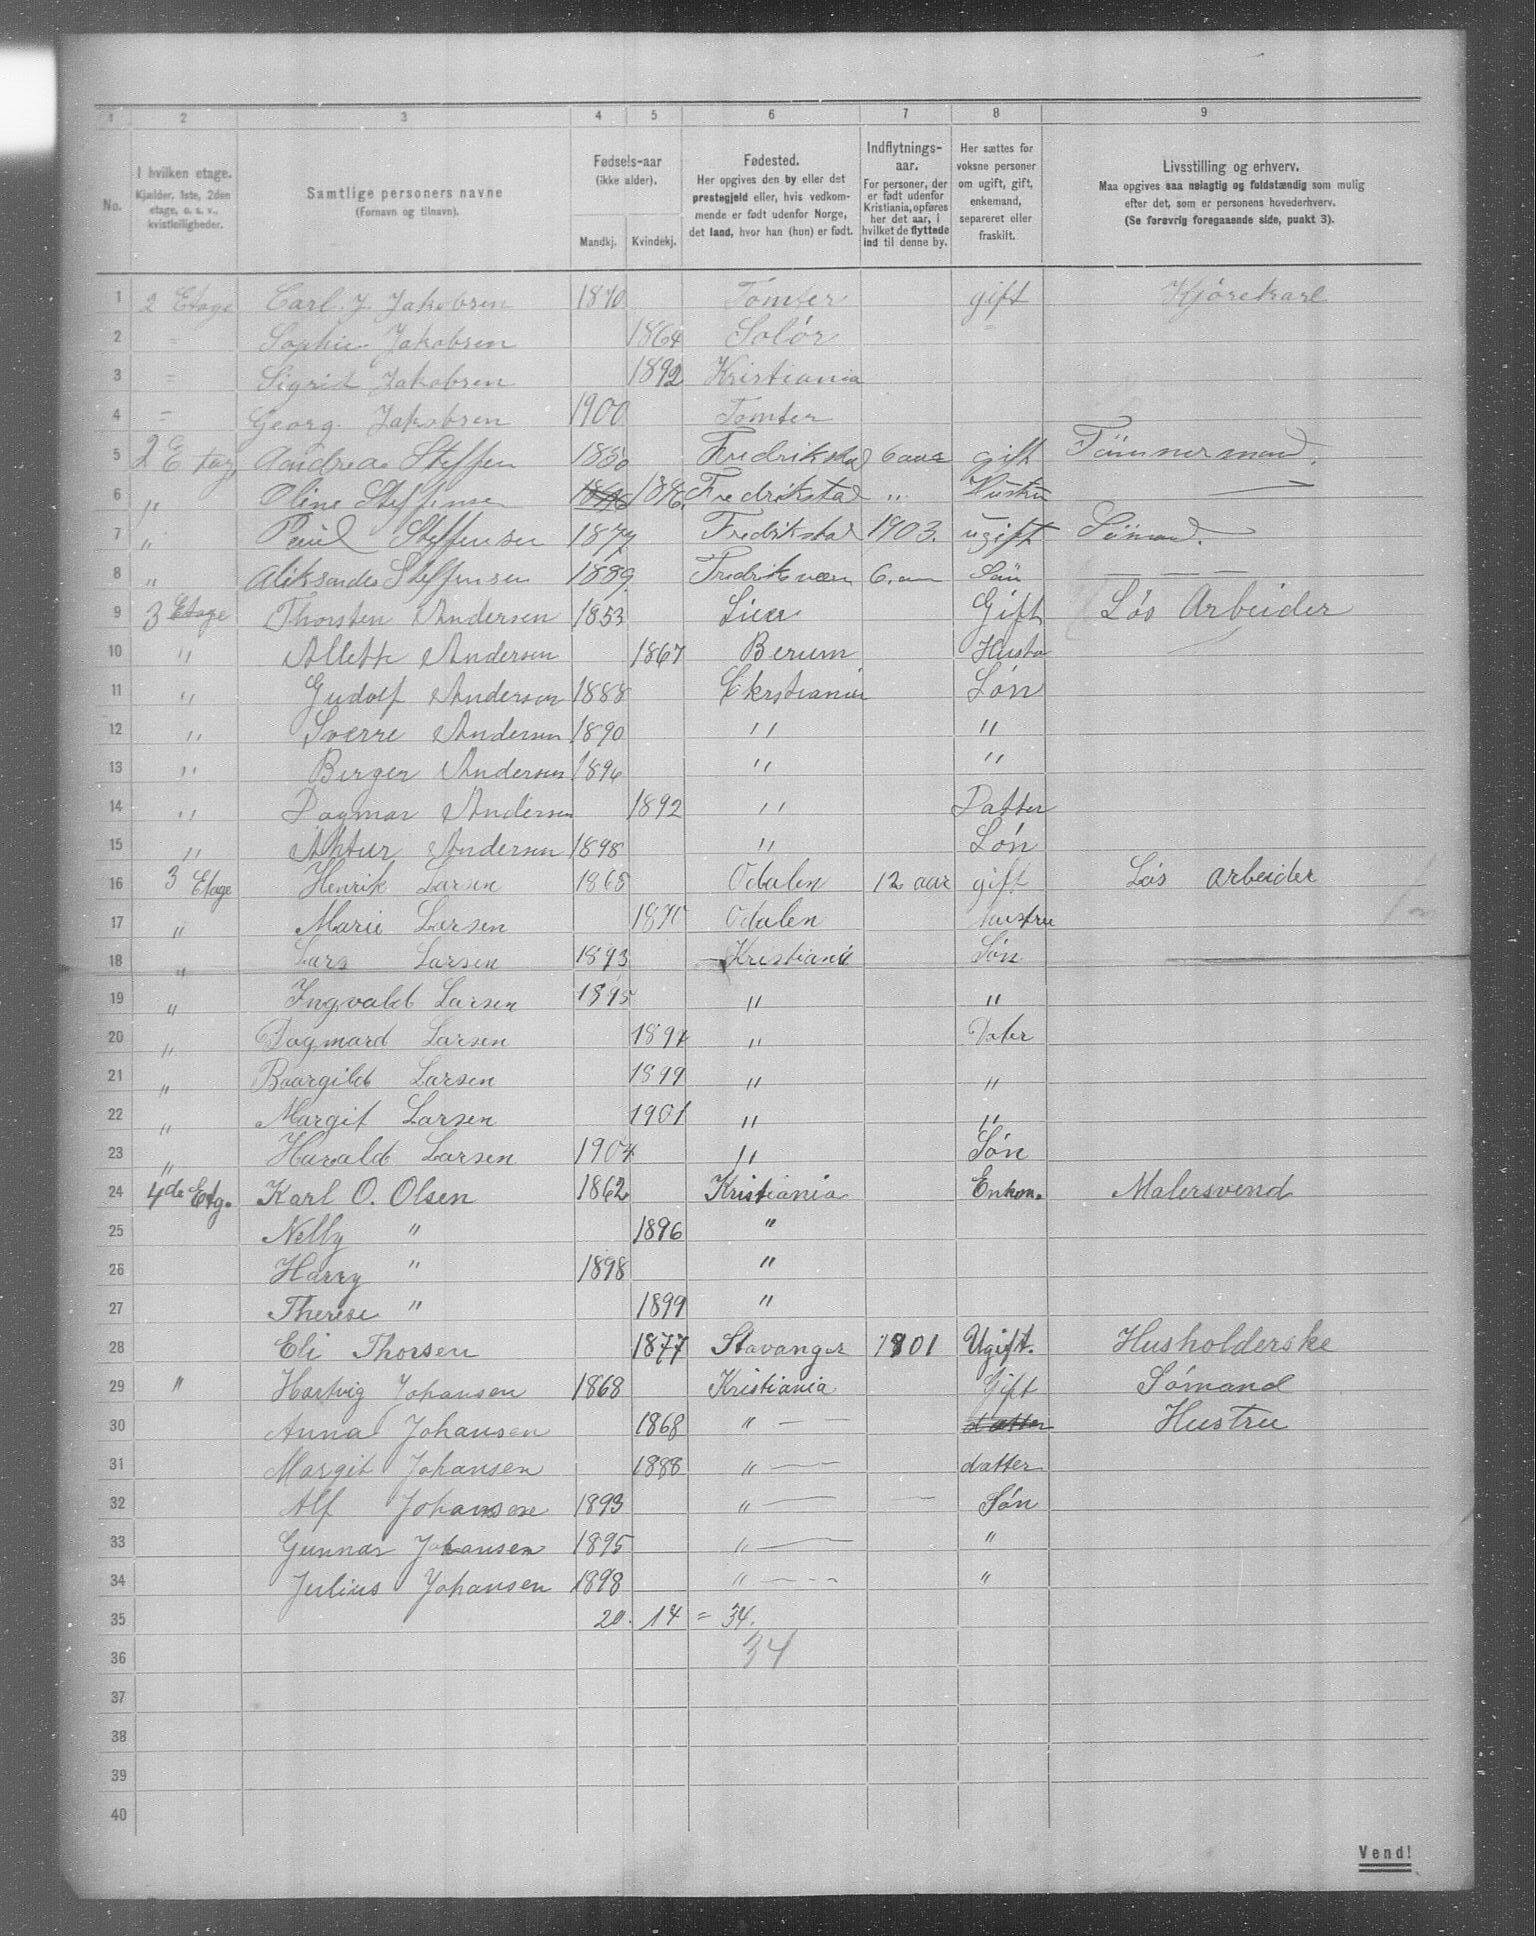 1 2 3 4 5 6 7 8 9
No. I hvilken etage. Kjælder, 1ste, 2den etage, o. s. v., kvistleiligheder. Samtlige personers navne (Fornavn og tilnavn). Fødsels-aar (ikke alder). Mandkj. Kvindekj. Fødested. Her opgives den by eller det prestegjeld eller, hvis vedkommende er født udenfor Norge, det land, hvor han (hun) er født. Indflytnings-aar. For personer, der er født udenfor Kristiania, opføres her det aar, i hvilket de flyttede ind til denne by. Her sættes for voksne personer om ugift, gift, enkemand, separeret eller fraskilt. Livsstilling og erhverv. Maa opgives saa nøiagtig og fuldstændig som mulig efter det, som er personens hovederhverv. (Se forøvrig foregaaende side, punkt 3).
1 2 Etage Carl. J. Jakobsen 1870 Tomter gift Kjørekarl
2 " Sophie Jakobsen 1864 Solør "
3 " Sigrid Jakobsen 1892 Kristiania
4 " Georg. Jakobsen 1900 Tomter
5 2 Etag Aandreas Steffen 1850 Fredrikstad 6 aar gift Tømmermand.
6 " Oline Steffensen 1846. Fredrikstad " Hustru
7 " Paul Steffensen 1877 Fredrikstad 1903. ugift Sømand.
8 " Aliksander Steffensen 1889. Fredriksværn 6. aar Søn — — —
9 3 Etage Thorsten Andersen 1853 Lier Gift Løs Arbeider
10 " Allette Andersen 1867 Berum Hustru
11 " Gudolf Andersen 1888 Ckrstiania Søn
12 " Sverre Andersen 1890 " "
13 " Birger Andersen 1896 " "
14 " Dagmar Andersen 1892 " Datter
15 " Athur Andersen 1898 " Søn
16 3 Etage Henrik Larsen 1868 Odalen 12 aar gift Løs arbeider
17 " Marie Larsen 1870 Odalen hustru
18 " Lars Larsen 1893 Kristiania Søn
19 " Ingvald Larsen 1895 " "
20 " Dagmard Larsen 1897 " Dater
21 " Baargild Larsen 1899 " "
22 " Margit Larsen 1901 " "
23 " Harald Larsen 1904 " Søn
24 4de Etg. Karl O. Olsen 1862 Kristiania Enkem. Malersvend
25 Nelly " 1896 "
26 Harry " 1898 "
27 Therese " 1899 "
28 Eli Thorsen 1877 Stavanger 1901 Ugift. Husholderske
29 " Hartvig Johansen 1868 Kristiania Gift Sømand
30 Anna Johansen 1868 " — — datter Hustru
31 Margit Johansen 1888 " — datter
32 Alf Johansen 1893 " — — Søn
33 Gunnar Johansen 1895 " — "
34 Julius Johansen 1898 " — — "
35 20. 14 = 34.
36 34
37
38
39
40
Vend!